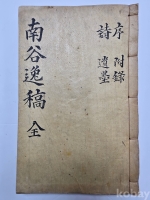 序 附錄
詩 遺墨
南谷逸稿 全
kobay